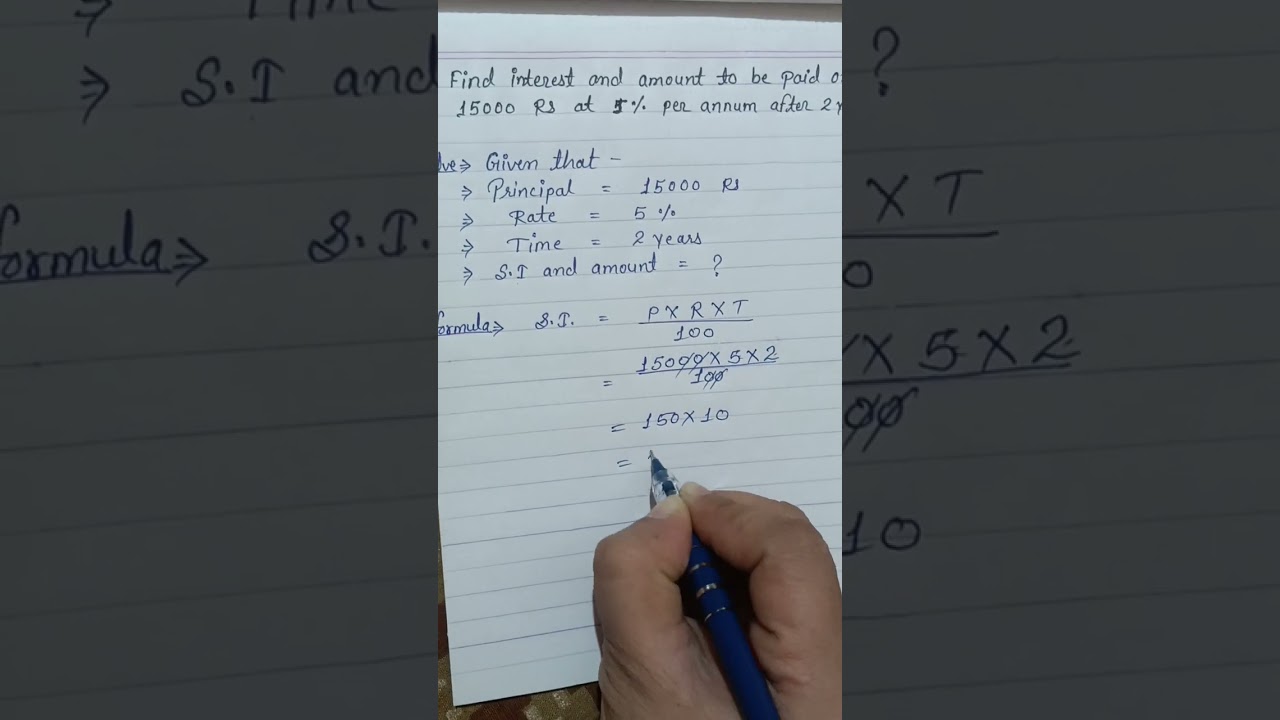 Find interest and amount to be paid o
15000 Rs at 5% per annum after 2 y
lve⇒ Given that –
⇒ Principal = 15000 Rs
⇒ Rate = 5 %
⇒ Time = 2 years
⇒ S.I and amount = ?
formula⇒ S.I. = P X R X T
100
= 15000 X 5 X 2
100
= 150 X 10
=